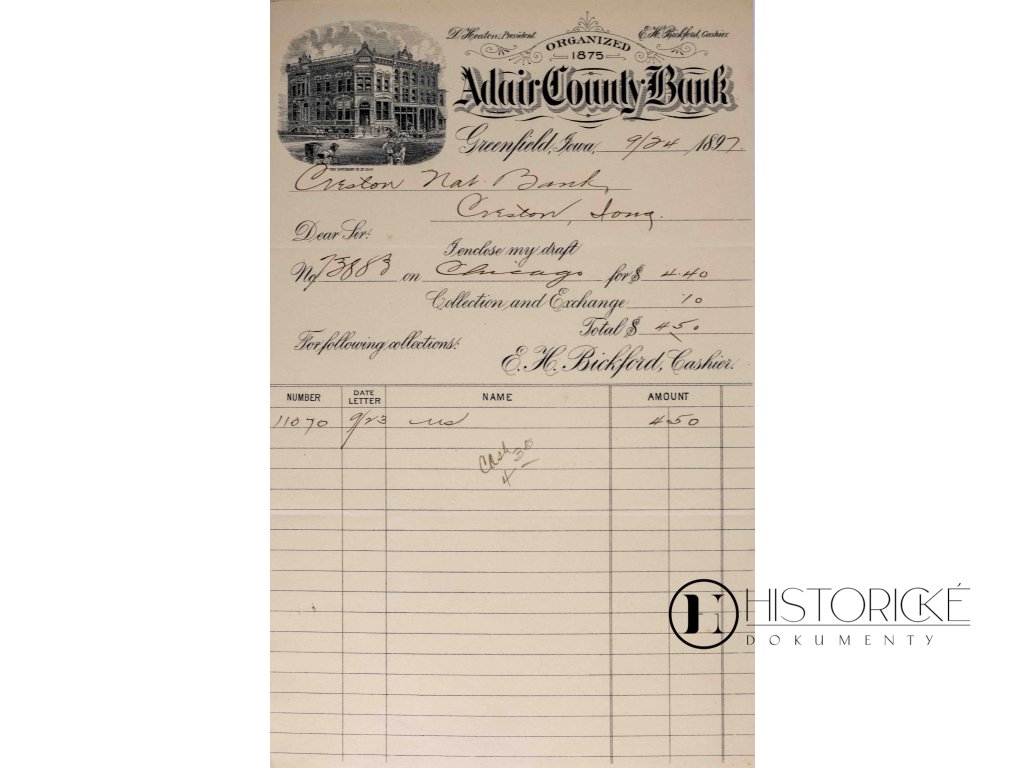 D. Heaton, President.
E. H. Bickford, Cashier.
ORGANIZED
1875
Adair County Bank
Greenfield, Iowa, 9/24 1897
Creston Nat. Bank,
Creston, Iowa.
Dear Sir:
I enclose my draft
No. 73883 on Chicago for $ 4.40
Collection and Exchange 10
Total $ 450
For following collections:
E. H. Bickford, Cashier.
NUMBER DATE LETTER NAME AMOUNT
11070 9/23 450
Cash
4 35
HISTORICKÉ
DOKUMENTY